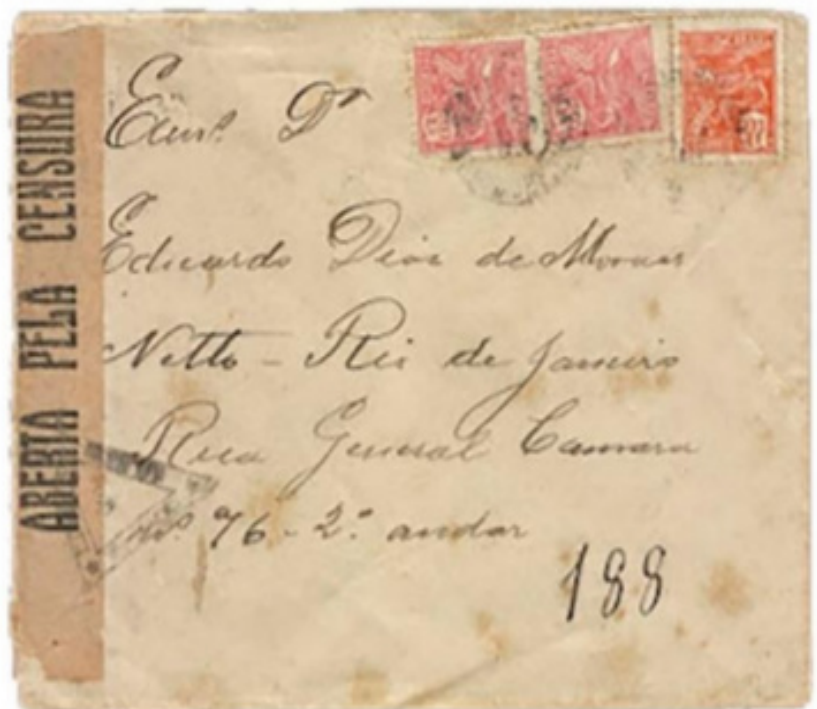 ABERTA PELA CENSURA
Exmº Dr
Eduardo Dias de Moraes
Netto - Rio de Janeiro
Rua General Camara
nº 76 - 2º andar
188